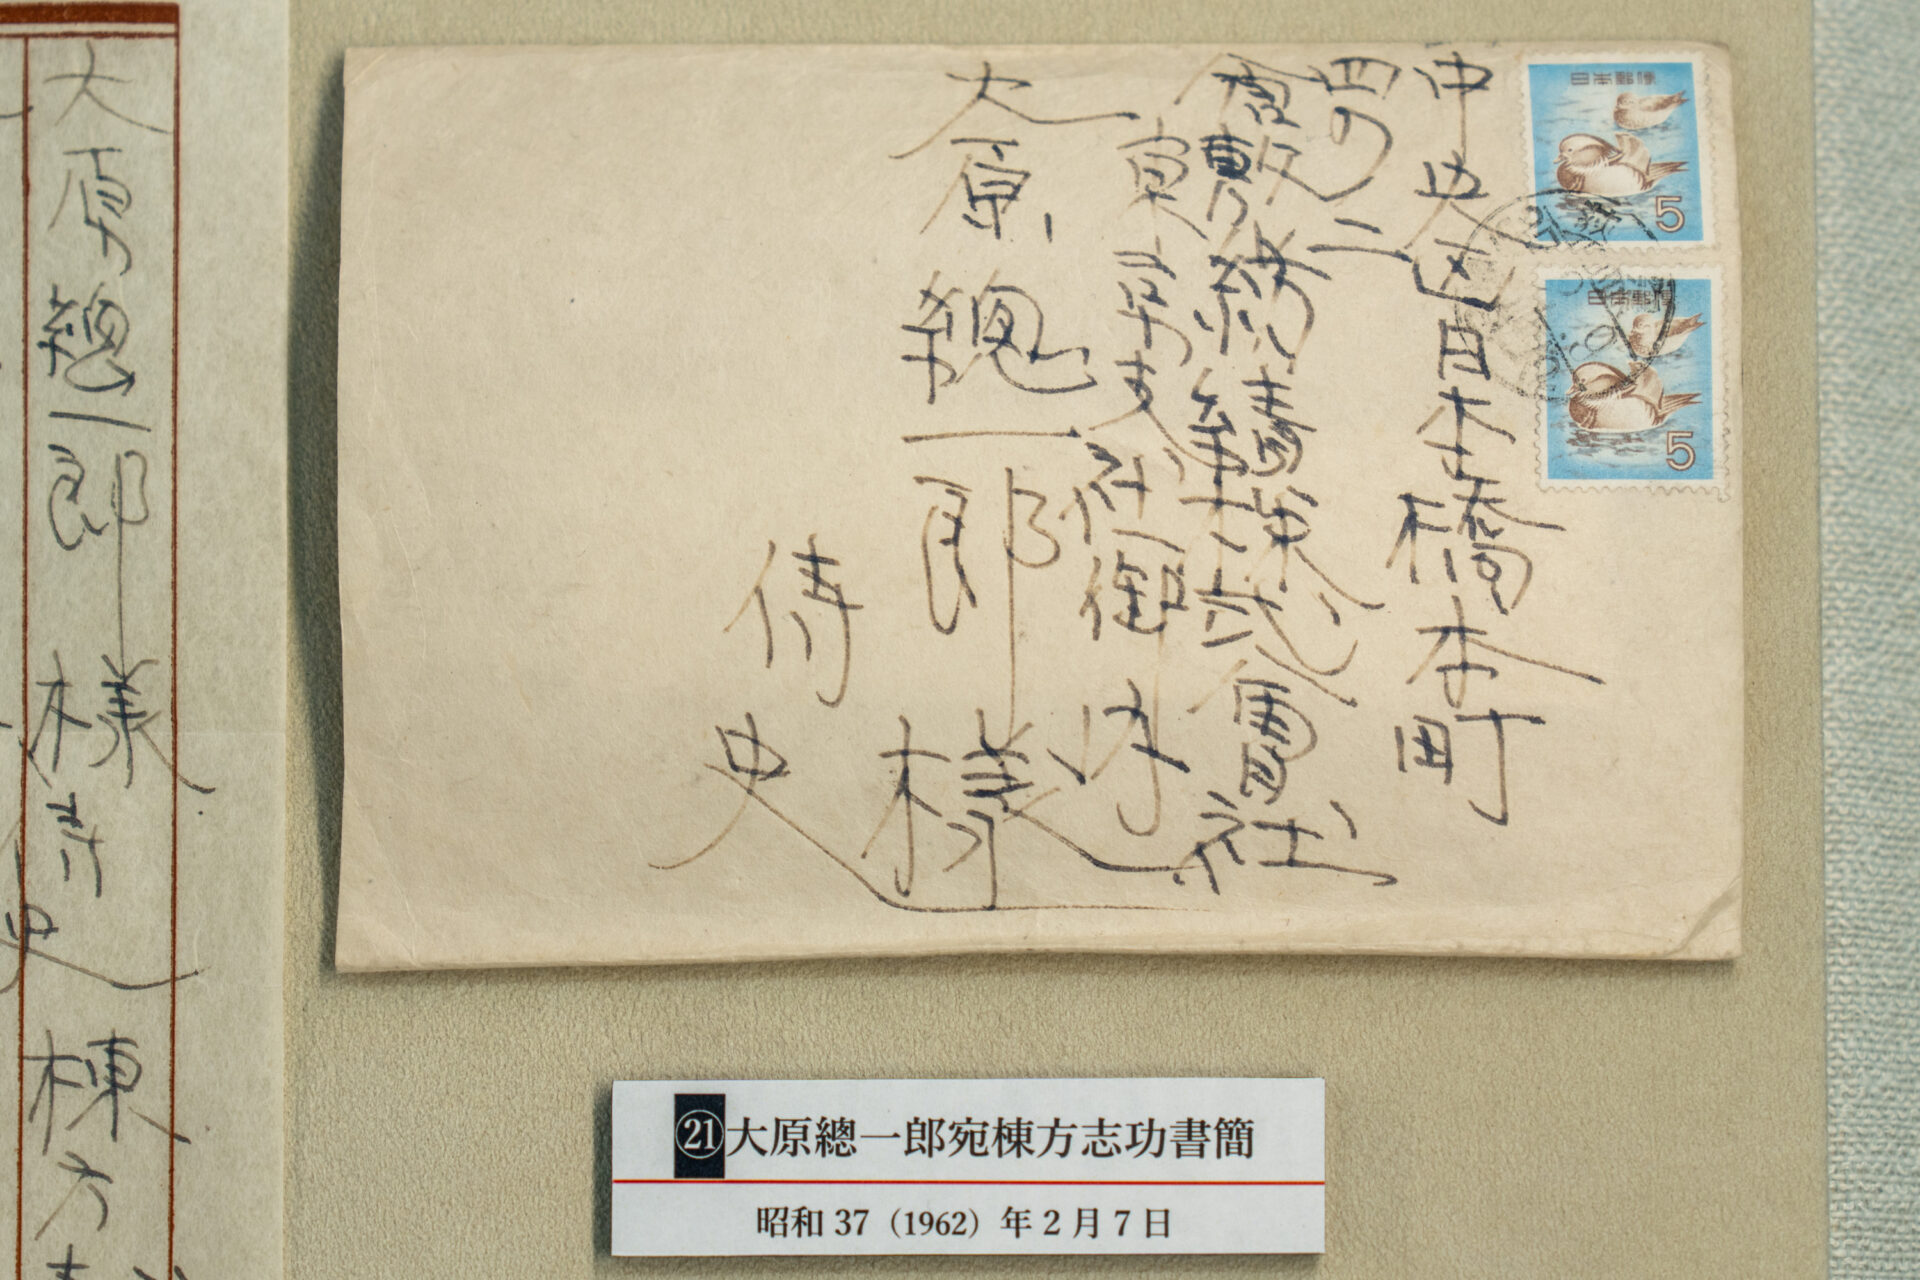 中央区日本橋本町
四ノ二
倉敷絹績株式會社
東京支社御内
大原總一郎様
侍史
日本郵便
5
日本郵便
5
大原總一郎様侍史
棟方
㉑大原總一郎宛棟方志功書簡
昭和37（1962）年2月7日